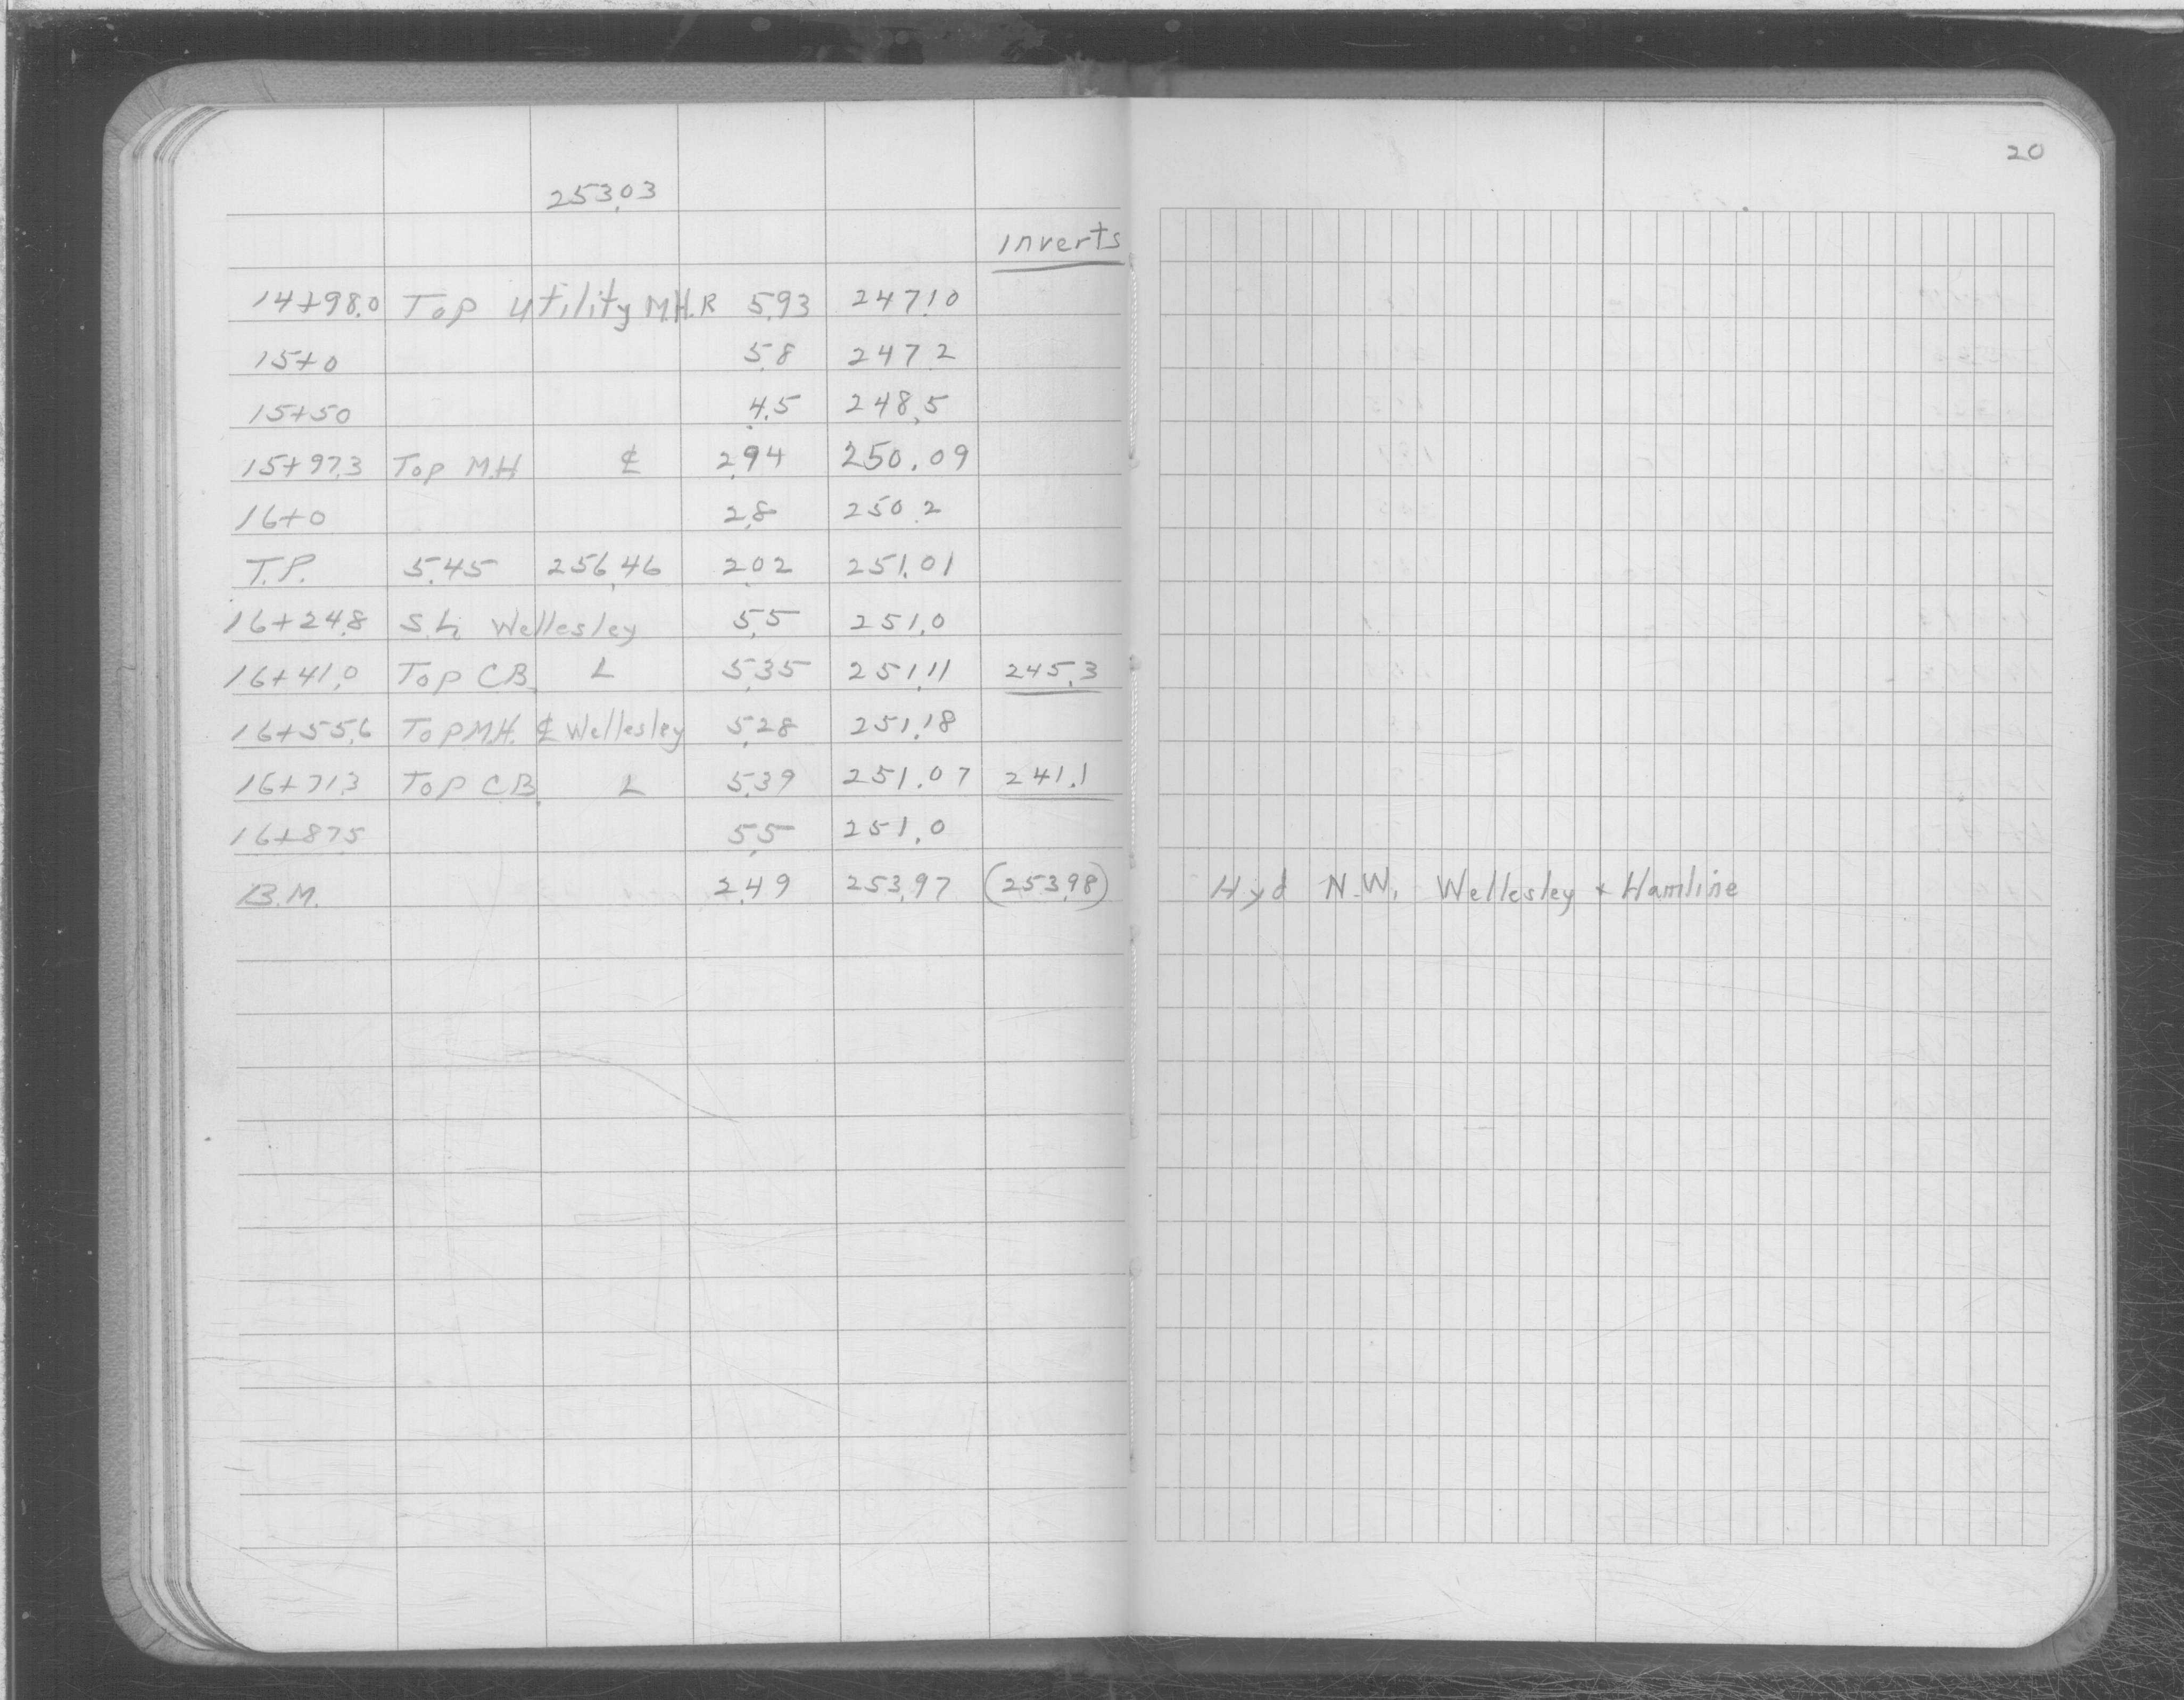 20
253.03
Inverts
14+98.0 Top Utility M.H. R 5.93 247.10
15+0 5.8 247.2
15+50 4.5 248.5
15+97.3 Top M.H ℄ 2.94 250.09
16+0 2.8 250.2
T.P. 5.45 256.46 2.02 251.01
16+24.8 S.L. Wellesley 5.5 251.0
16+41.0 Top C.B. L 5.35 251.11 245.3
16+55.6 Top M.H. ℄ Wellesley 5.28 251.18
16+71.3 Top C.B. L 5.39 251.07 241.1
16+87.5 5.5 251.0
B.M. 2.49 253.97 (253.98) Hyd N.W. Wellesley + Hamline